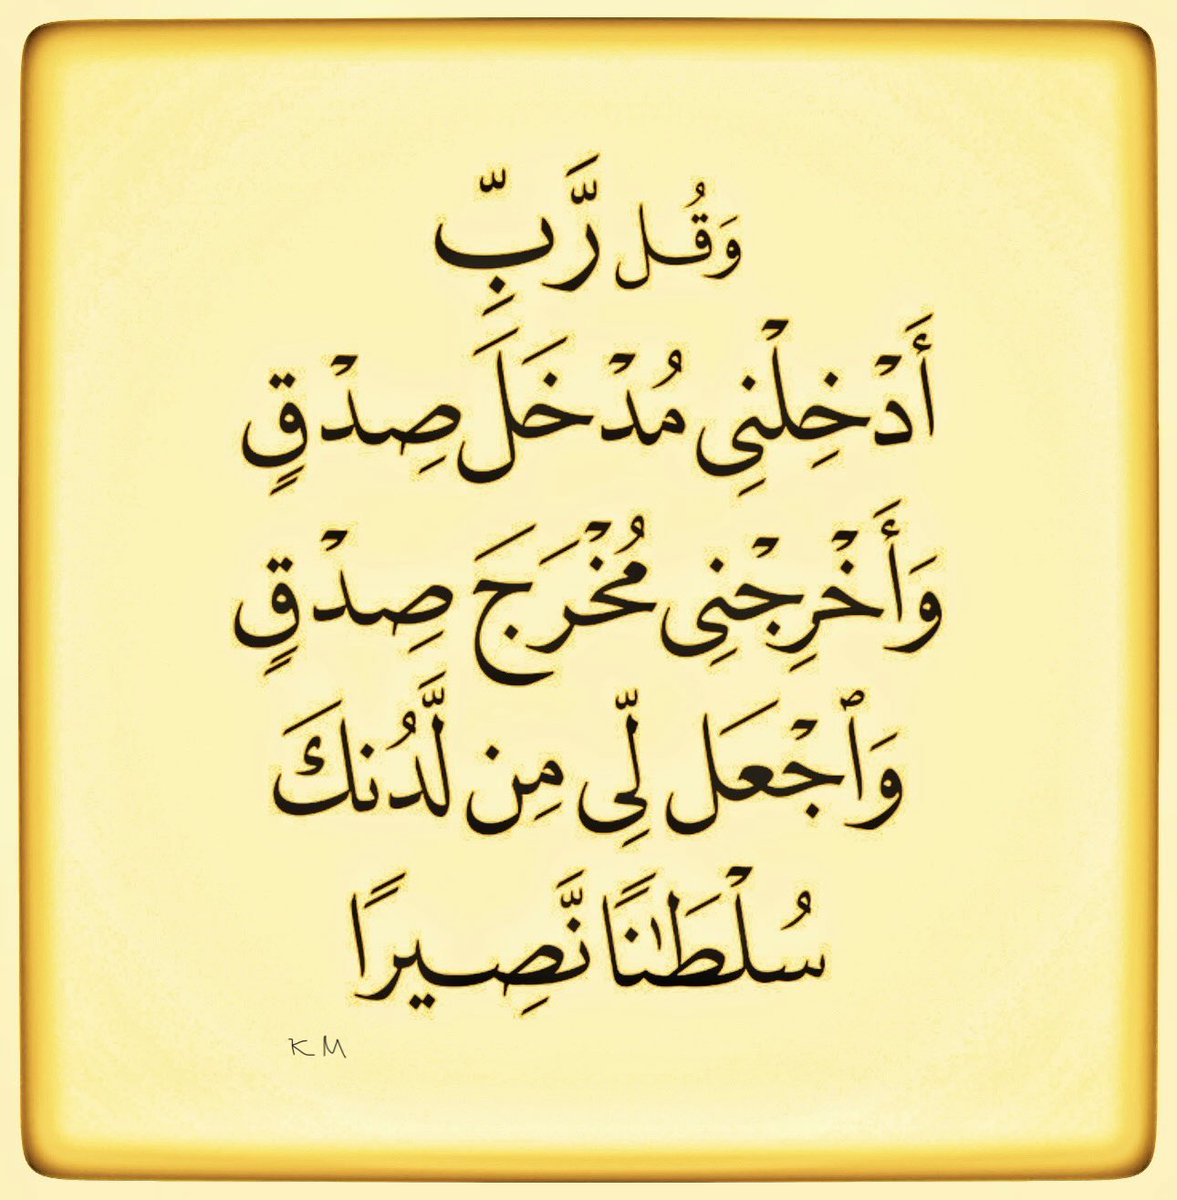 وَقُل رَّبِّ
أَدْخِلْنِى مُدْخَلَ صِدْقٍ
وَأَخْرِجْنِى مُخْرَجَ صِدْقٍ
وَٱجْعَل لِّى مِن لَّدُنكَ
سُلْطَـٰنًا نَّصِيرًا
K M